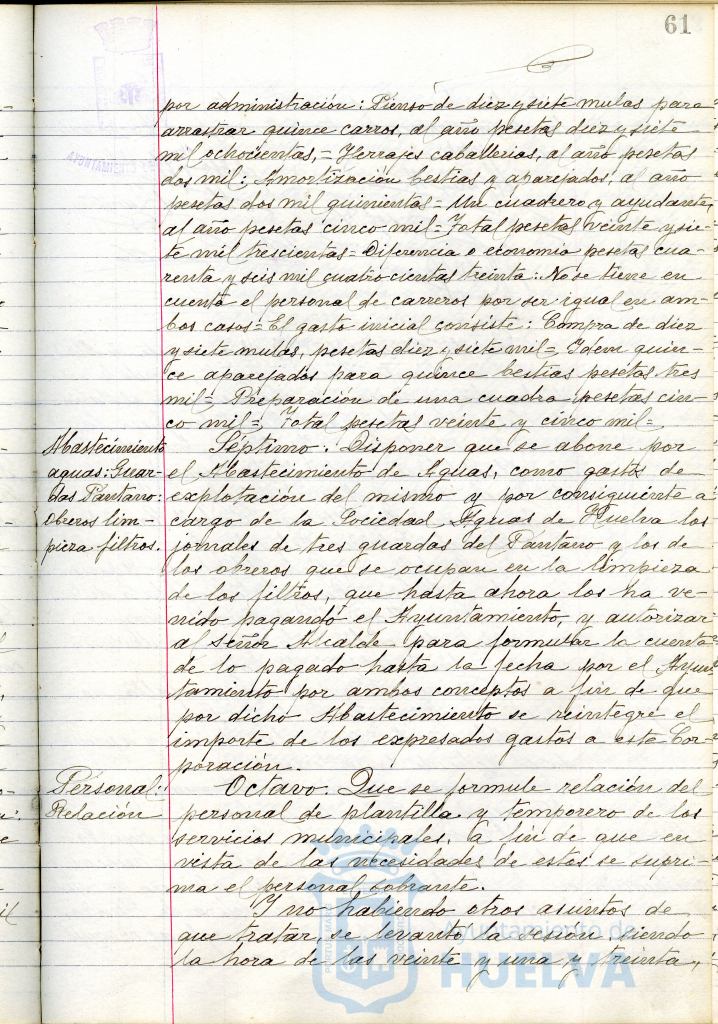 61
por administración: Pienso de diez y siete mulas para
arrastrar quince carros, al año pesetas diez y siete
mil ochocientas,= Herrajes caballerias, al año pesetas
dos mil: Amortización bestias y aparejados, al año
pesetas dos mil quinientas= Un cuadrero y ayudante,
al año pesetas cinco mil= Total pesetas veinte y sie-
te mil trescientas= Diferencia o economia pesetas cua-
renta y seis mil cuatrocientas treinta: No se tiene en
cuenta el personal de carreros por ser igual en am-
bos casos= El gasto inicial consiste: Compra de diez
y siete mulas, pesetas diez y siete mil= Idem quin-
ce aparejados para quince bestias pesetas tres
mil= Preparación de una cuadra pesetas cin-
co mil= Total pesetas veinte y cinco mil=
Abastecimiento
aguas: Guar-
das Pantano:
obreros lim-
pieza filtros.
Séptimo. Disponer que se abone por
el Abastecimiento de Aguas, como gastos de
explotación del mismo y por consiguiente a
cargo de la Sociedad Aguas de Huelva los
jornales de tres guardas del Pantano y los de
los obreros que se ocupan en la limpieza
de los filtros, que hasta ahora los ha ve-
nido pagando el Ayuntamiento, y autorizar
al señor Alcalde para formular la cuenta
de lo pagado hasta la fecha por el Ayun-
tamiento por ambos conceptos a fin de que
por dicho Abastecimiento se reintegre el
importe de los expresados gastos a esta Cor-
poración.
Personal:
Relación
Octavo. Que se formule relación del
personal de plantilla y temporero de los
servicios municipales, a fin de que en
vista de las necesidades de estos se supri-
ma el personal sobrante.
Y no habiendo otros asuntos de
que tratar, se levantó la sesión siendo
la hora de las veinte y una y treinta,
Ayuntamiento de
HUELVA